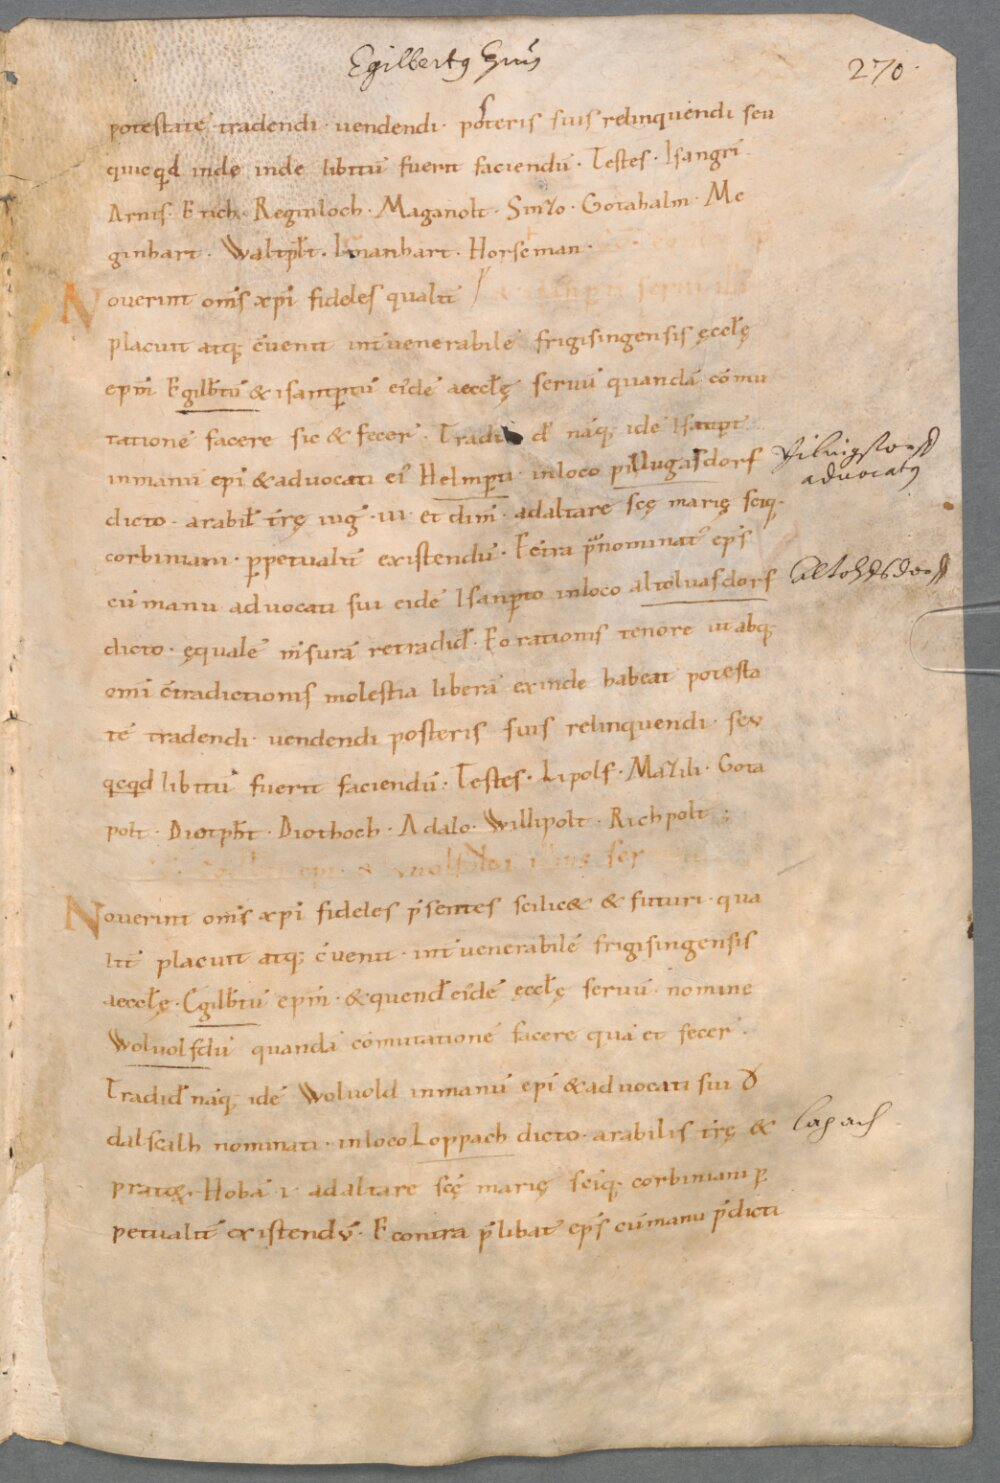 Egilbertꝰ Epūs
270.
potestatē tradendi · uendendi · posteris suis relinquendi seu
quicqd inde inde libitū fuerit faciendū · Testes · Isangrī
Arnis · Erich · Reginloch · Maganolt · Sinzo · Gotahalm · Me
ginhart · Waltp̄ht · Imanhart · Horseman ·
Nouerint om̄s xp̄i fideles qualit̄
placuit atq; c̄uenit int̄ uenerabilē frigisingensis ęccl̄ę
ep̄m Egilb̄tū & isantp̄tū eidē aeccl̄ę seruū quandā cōmu
tationē facere sic & fecer̄ · Tradi d̄ naq; idē Isanp̄t
in manū ep̄i & aduocati ei᷒ Helmp̄ti · inloco pillugasdorf
Pilingstorff
aduocatꝰ
dicto · arabil̄ t̄rę iug̃ · III · et dim̄ · ad altare sc̄ę marię sc̄iq;
corbiniani · ꝑpetualit̄ existendū · Ec̄tra p̄nominat᷒ ep̄s
cū manu aduocati sui eidē Isanp̄to inloco altoluasdorf
Altoltsdorff
dicto · ęqualē m̄surā retradid̄ · Eo rationis tenore ut absq;
om̄i c̄tradictionis molestia liberā exinde habeat potesta
tē tradendi · uendendi posteris suis relinquendi · seu
qcqd libitū fuerit faciendū · Testes · Lipolf · Mazili · Gota
polt · Diotp̄ht · Diothoch · Adalo · Willipolt · Richpolt ;
Nouerint om̄s xp̄i fideles p̄sentes scilic& & futuri · qua
lit̄ placuit atq; c̄uenit · int̄ uenerabilē frigisingensis
aeccl̄ę · Egilb̄tū ep̄m · & quend̄ eidē ęccl̄ę seruū · nomine
Woluolfdū quandā cōmutationē facere quā et fecer̄ ·
Tradid̄ naq; idē Woluold in manū ep̄i & aduocati sui O
dalscalh nominati · inloco Loppach dicto · arabilis t̄rę &
Lapach
pratę · Hobā I · ad altare sc̄ę marię sc̄iq; corbiniani ꝑ
petualit̄ existendū · Econtra p̄libat᷒ ep̄s cū manu p̄dicti